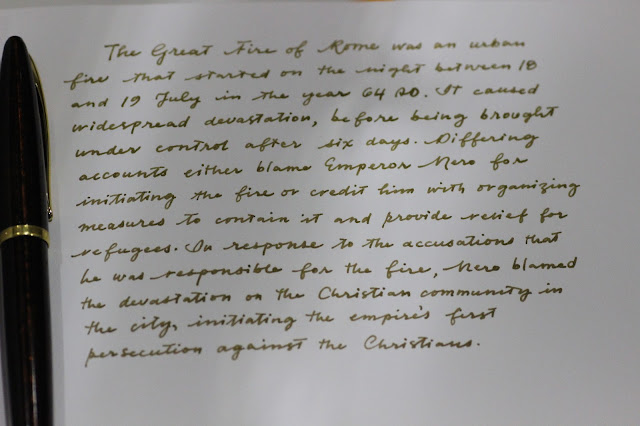 The Great Fire of Rome was an urban
fire that started on the night between 18
and 19 July in the year 64 AD. It caused
widespread devastation, before being brought
under control after six days. Differing
accounts either blame Emperor Nero for
initiating the fire or credit him with organizing
measures to contain it and provide relief for
refugees. In response to the accusations that
he was responsible for the fire, Nero blamed
the devastation on the Christian community in
the city, initiating the empire's first
persecution against the Christians.